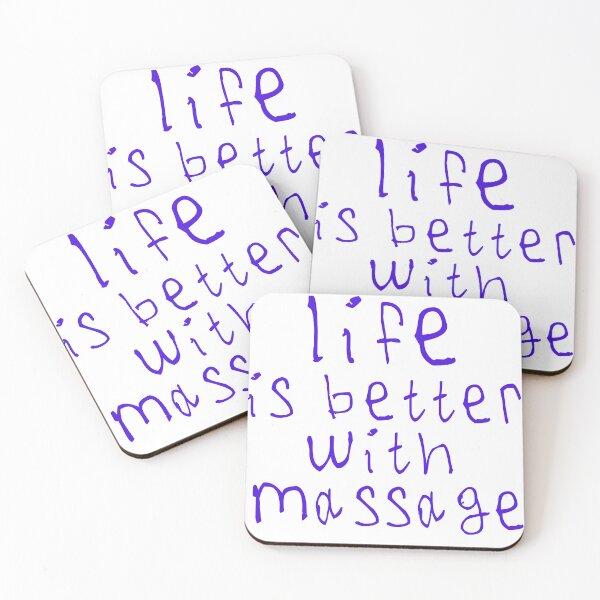 life
is better
life
is better
with
life
is better
with
life
is better
with
massage